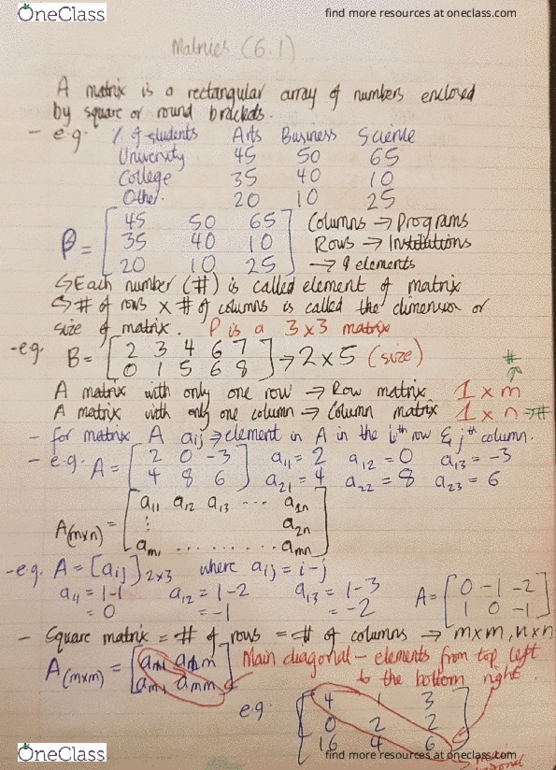 OneClass
find more resources at oneclass.com
Matrices (6.1)
A matrix is a rectangular array of numbers enclosed
by square or round brackets.
- e.g. % of students Arts Business Science
University 45 50 65
College 35 40 10
Other 20 10 25
P = [45 50 65 Columns → Programs
35 40 10 Rows → Institutions
20 10 25] → 9 elements
↳ Each number (#) is called element of matrix
↳ # of rows x # of columns is called the dimension or
size of matrix. P is a 3x3 matrix
- eg. B = [2 3 4 6 7
0 1 5 6 8] → 2x5 (size)
#
A matrix with only one row → Row matrix 1 x m
A matrix with only one column → Column matrix 1 x n → #
- for matrix A aij → element in A in the ith row & jth column.
- e.g. A = [2 0 -3 a11 = 2 a12 = 0 a13 = -3
4 8 6] a21 = 4 a22 = 8 a23 = 6
A(mxn) = [a11 a12 a13 ... a1n
⋮ a2n
am1 ......... amn]
- eg. A = [aij]2x3 where aij = i-j
a11 = 1-1 a12 = 1-2 a13 = 1-3 A = [0 -1 -2
= 0 = -1 = -2 1 0 -1]
- Square matrix = # of rows = # of columns → mxm, nxn
A(mxm) = Main diagonal - elements from top left
am1 amm] to the bottom right.
e.g. [4 1 3
0 2 2
16 4 6]
OneClass
find more resources at oneclass.com